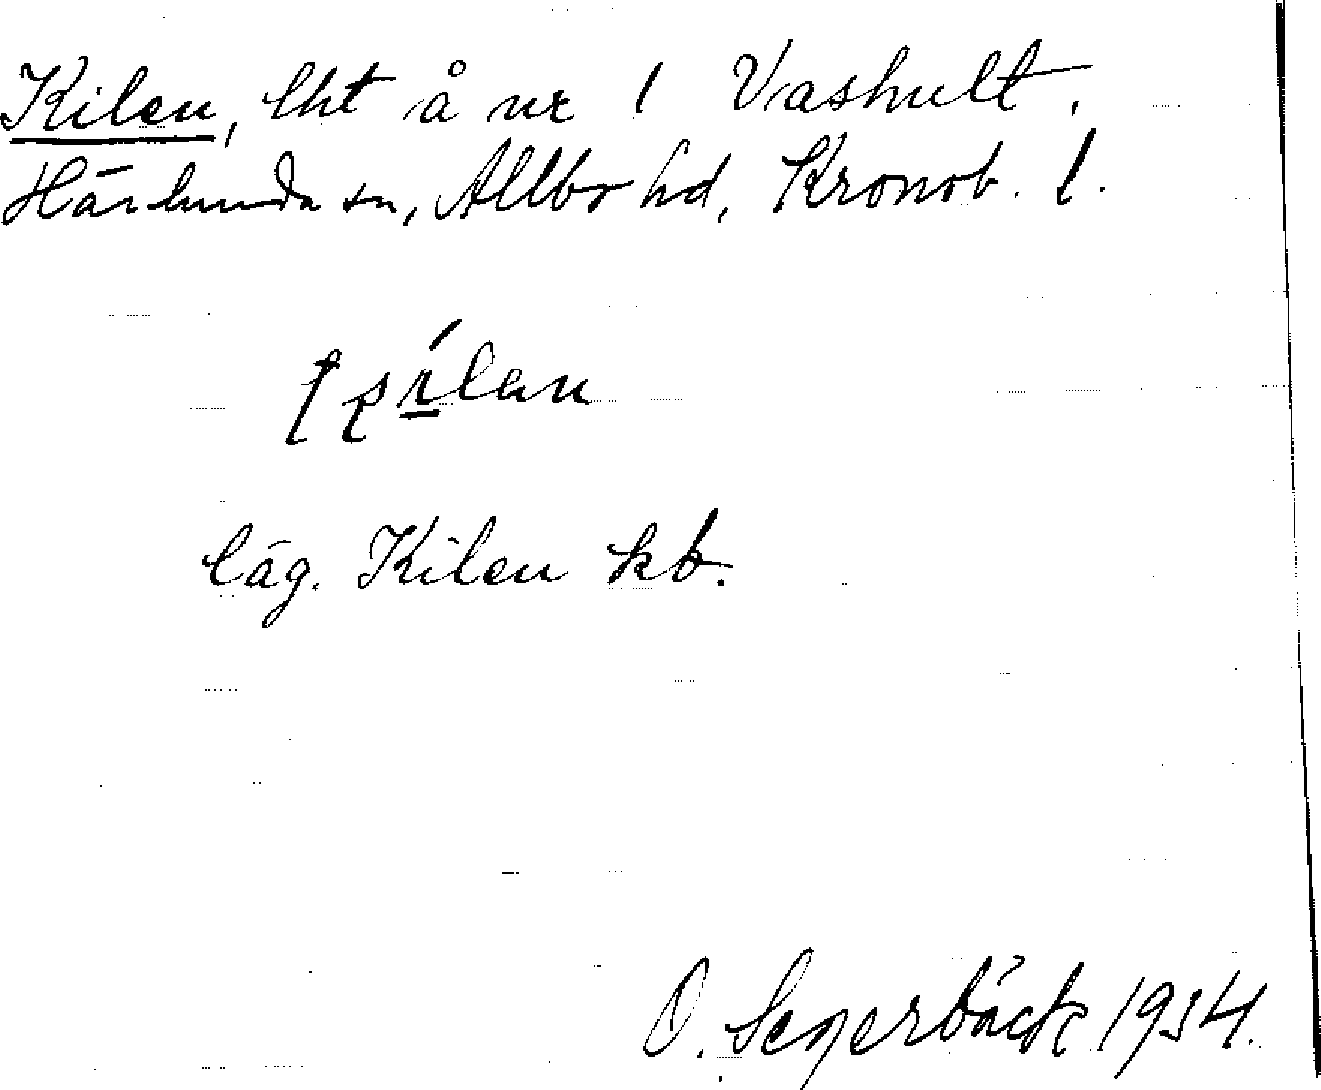 Kilen, lht å nr 1 Vashult,
Härlunda sn, Allbo hd, Kronob. l.
låg. Kilen kb.
O. Segerbäck 1934.